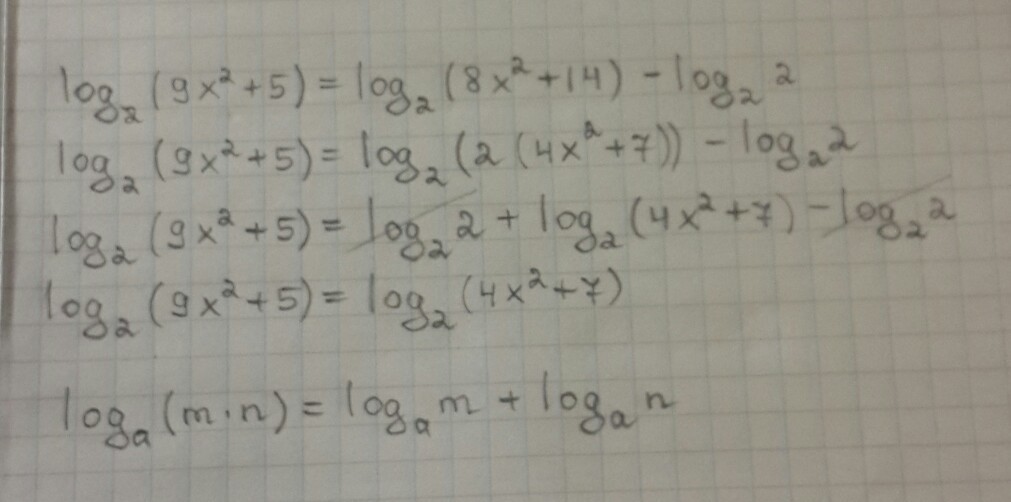 log₂ (9x²+5) = log₂ (8x²+14) - log₂ 2
log₂ (9x²+5) = log₂ (2 (4x²+7)) - log₂ 2
log₂ (9x²+5) = log₂ 2 + log₂ (4x²+7) - log₂ 2
log₂ (9x²+5) = log₂ (4x²+7)
logₐ (m·n) = logₐ m + logₐ n